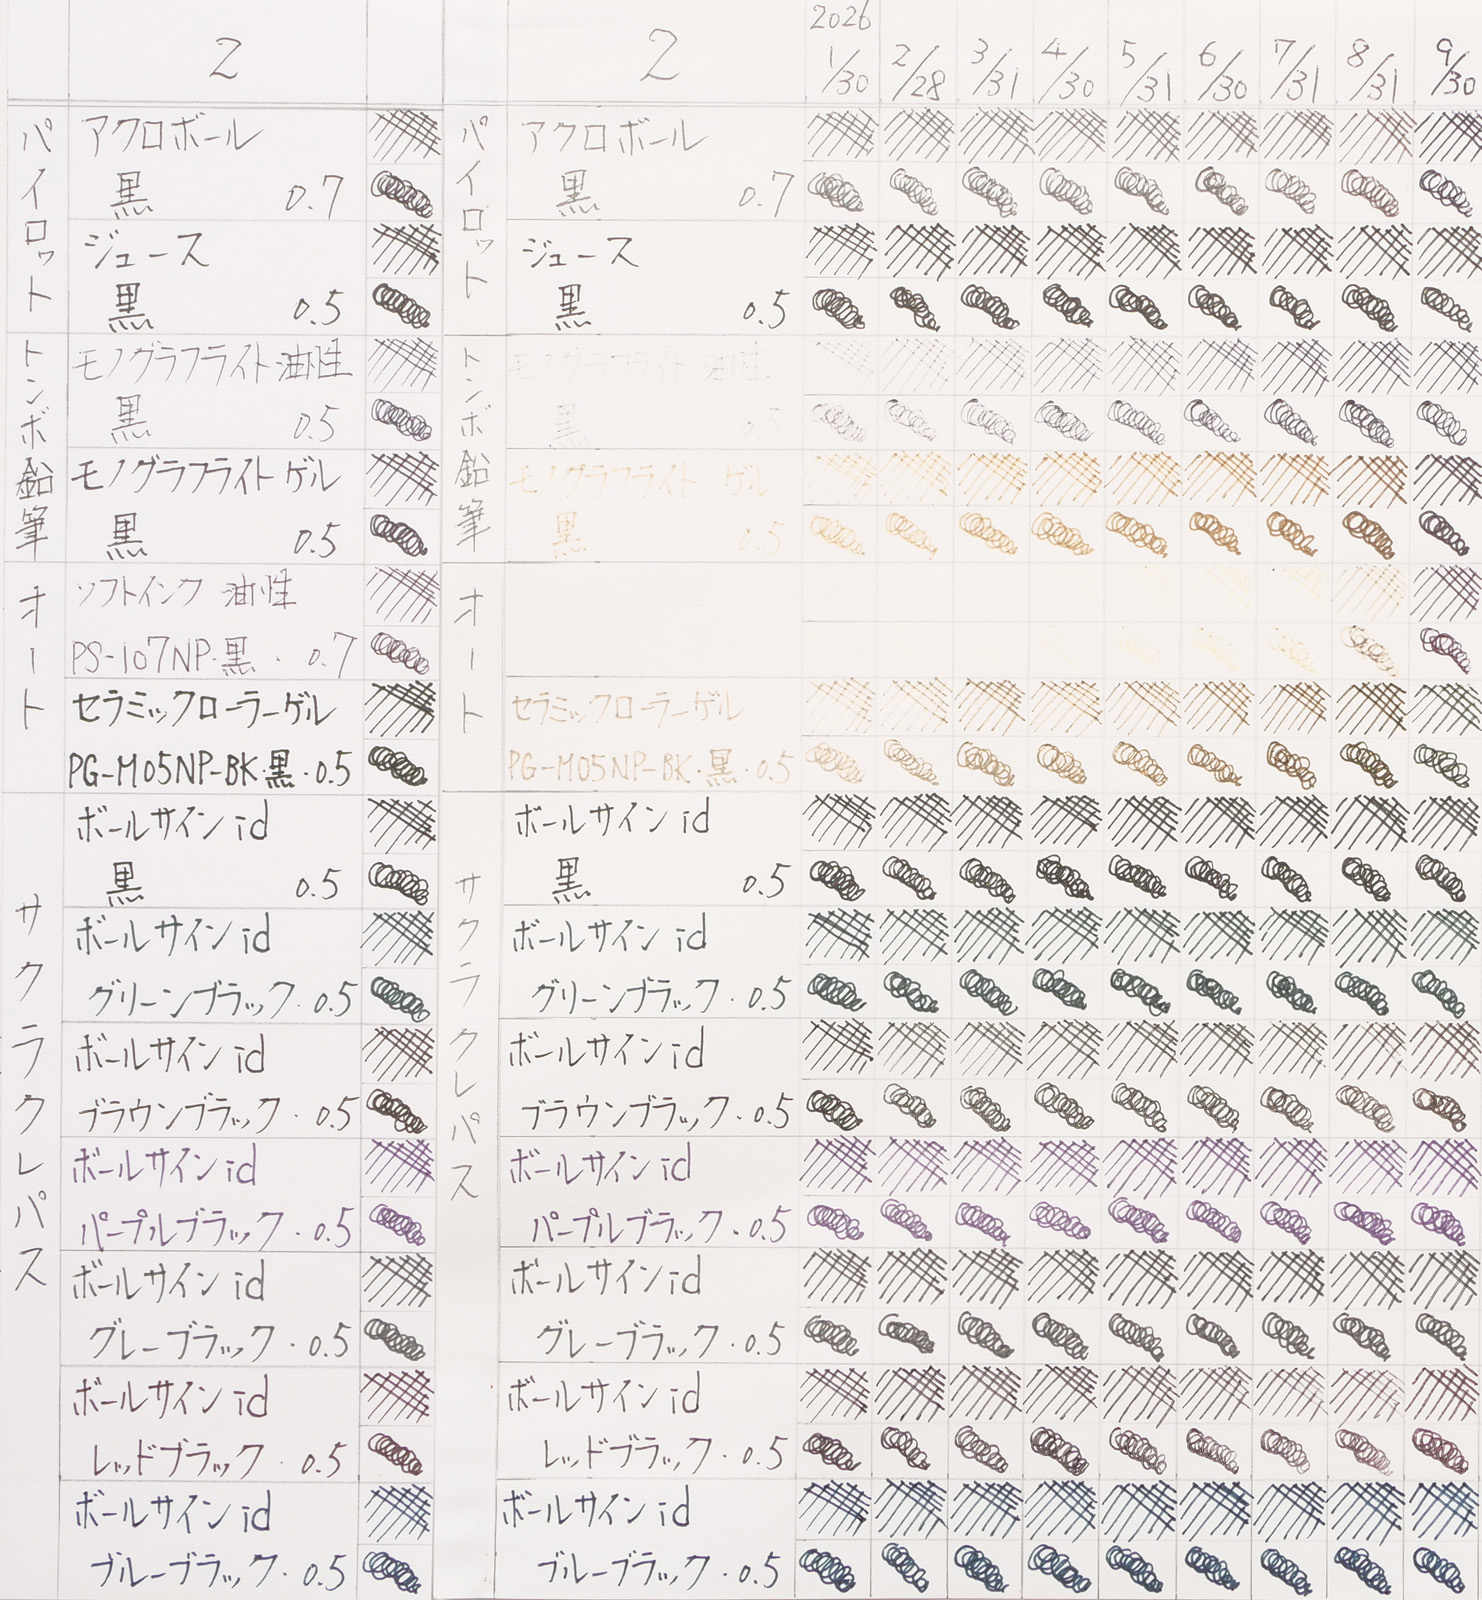 2
パイロット
アクロボール
黒 0.7
ジュース
黒 0.5
トンボ鉛筆
モノグラフライト油性
黒 0.5
モノグラフライトゲル
黒 0.5
オート
ソフトインク 油性
PS-107NP・黒・0.7
セラミックローラーゲル
PG-M05NP-BK・黒・0.5
サクラクレパス
ボールサインid
黒 0.5
ボールサインid
グリーンブラック・0.5
ボールサインid
ブラウンブラック・0.5
ボールサインid
パープルブラック・0.5
ボールサインid
グレーブラック・0.5
ボールサインid
レッドブラック・0.5
ボールサインid
ブルーブラック・0.5
2
2026
1/30 2/28 3/31 4/30 5/31 6/30 7/31 8/31 9/30
パイロット
アクロボール
黒 0.7
ジュース
黒 0.5
トンボ鉛筆
モノグラフライト油性
黒 0.5
モノグラフライト ゲル
黒 0.5
オート
セラミックローラーゲル
PG-M05NP-BK・黒・0.5
サクラクレパス
ボールサインid
黒 0.5
ボールサインid
グリーンブラック・0.5
ボールサインid
ブラウンブラック・0.5
ボールサインid
パープルブラック・0.5
ボールサインid
グレーブラック・0.5
ボールサインid
レッドブラック・0.5
ボールサインid
ブルーブラック・0.5